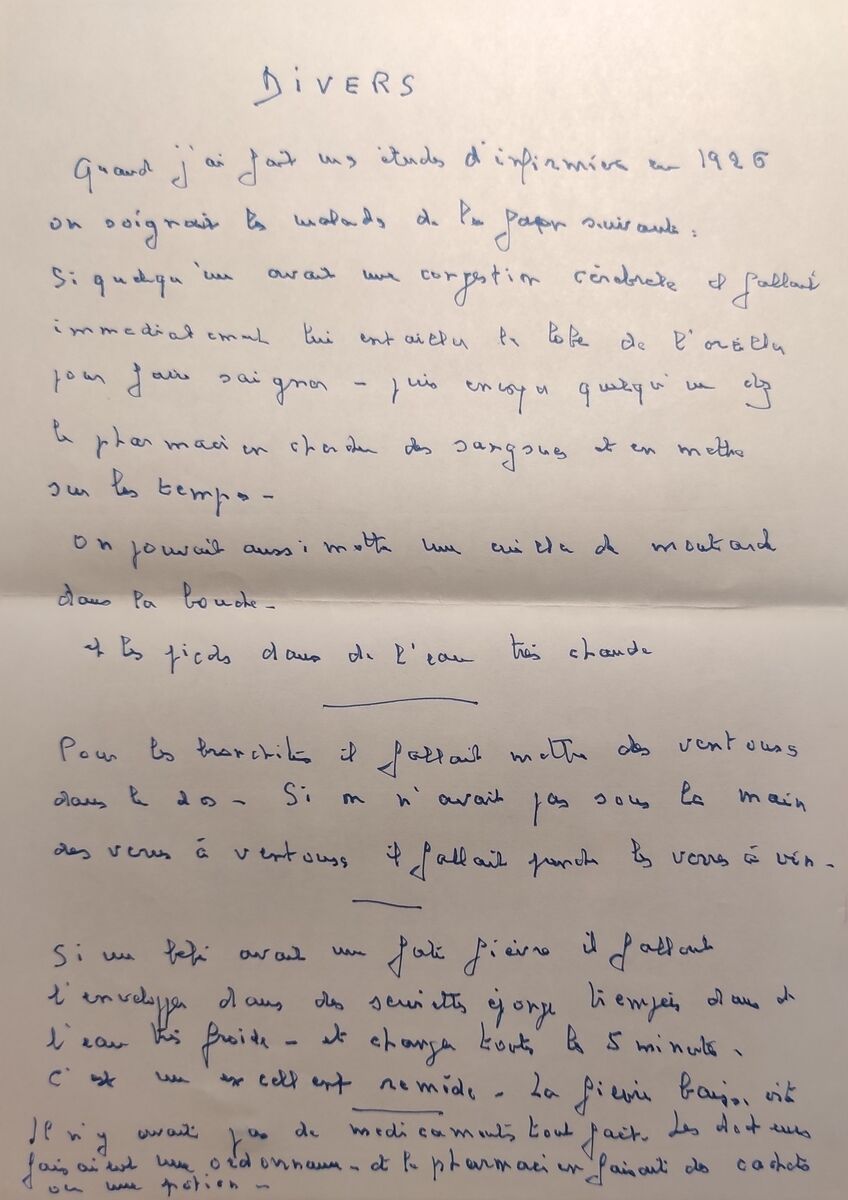 DIVERS
Quand j'ai fait mes études d'infirmière en 1926
on soignait les malades de la façon suivante :
Si quelqu'un avait une congestion cérébrale il fallait
immédiatement lui entailler le lobe de l'oreille
pour faire saigner - puis envoyer quelqu'un chez
le pharmacien chercher des sangsues et en mettre
sur les tempes -
On pouvait aussi mettre une cuiller de moutarde
dans la bouche -
et les pieds dans de l'eau très chaude
Pour les bronchites il fallait mettre des ventouses
dans le dos - Si on n'avait pas sous la main
des verres à ventouses il fallait prendre les verres à vin -
Si un bébé avait une forte fièvre il fallait
l'envelopper dans des serviettes éponge trempées dans de
l'eau très froide - et changer toutes les 5 minutes.
C'est un excellent remède - La fièvre baisse vite
Il n'y avait pas de médicaments tout fait. Les docteurs
faisaient une ordonnance - et le pharmacien faisait des cachets
ou une potion -